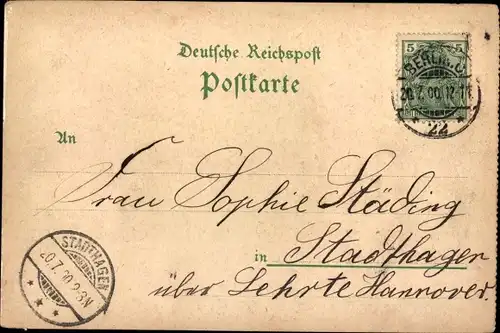 Deutsche Reichspost
Postkarte
5 5
BERLIN. C.
20.7.00.12-1N.
* 22 *
An
Frau Sophie Städing
in Stadthagen
über Lehrte Hannover.
STADTHAGEN
20.7.00.2-3N
* * *